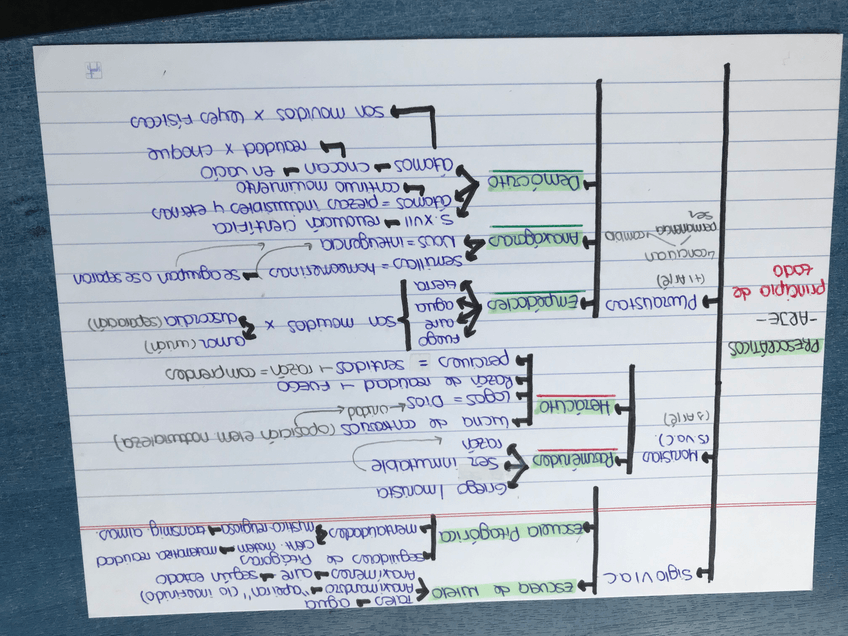 PRESOCRÁTICOS
-ARJE-
principio de
todo
Siglo VI a.C
ESCUELA DE MILETO
Tales → agua
Anaximandro → "apeiron" (lo indefinido)
Anaxímenes → aire → según estado
ESCUELA PITAGÓRICA
seguidores de Pitágoras
mentalidades
cien. matem → matematiza realidad
místico-religiosa → transmig. almas.
Monistas
(S. V a.C).
(1 Arjé)
Parménides
Griego / monista
Ser inmutable
razón
Heráclito
Lucha de contrarios (oposición elem naturaleza)
→ unidad
Logos = Dios
Razón de realidad → FUEGO
percibes = sentidos → razón = comprendes
Pluralistas
(+1 Arjé)
concilian
permanencia + cambio
ser
Empédocles
fuego
aire
agua
tierra
son movidos x
amor (unión)
discordia (separación)
Anaxágoras
semillas = homeomerías → se agrupan o se separan
Nous = inteligencia
S. XVII → revolución científica
Demócrito
átomos = piezas indivisibles y eternas
→ continuo movimiento
átomos → chocan → en vacío
realidad x choque
son movidos x leyes físicas